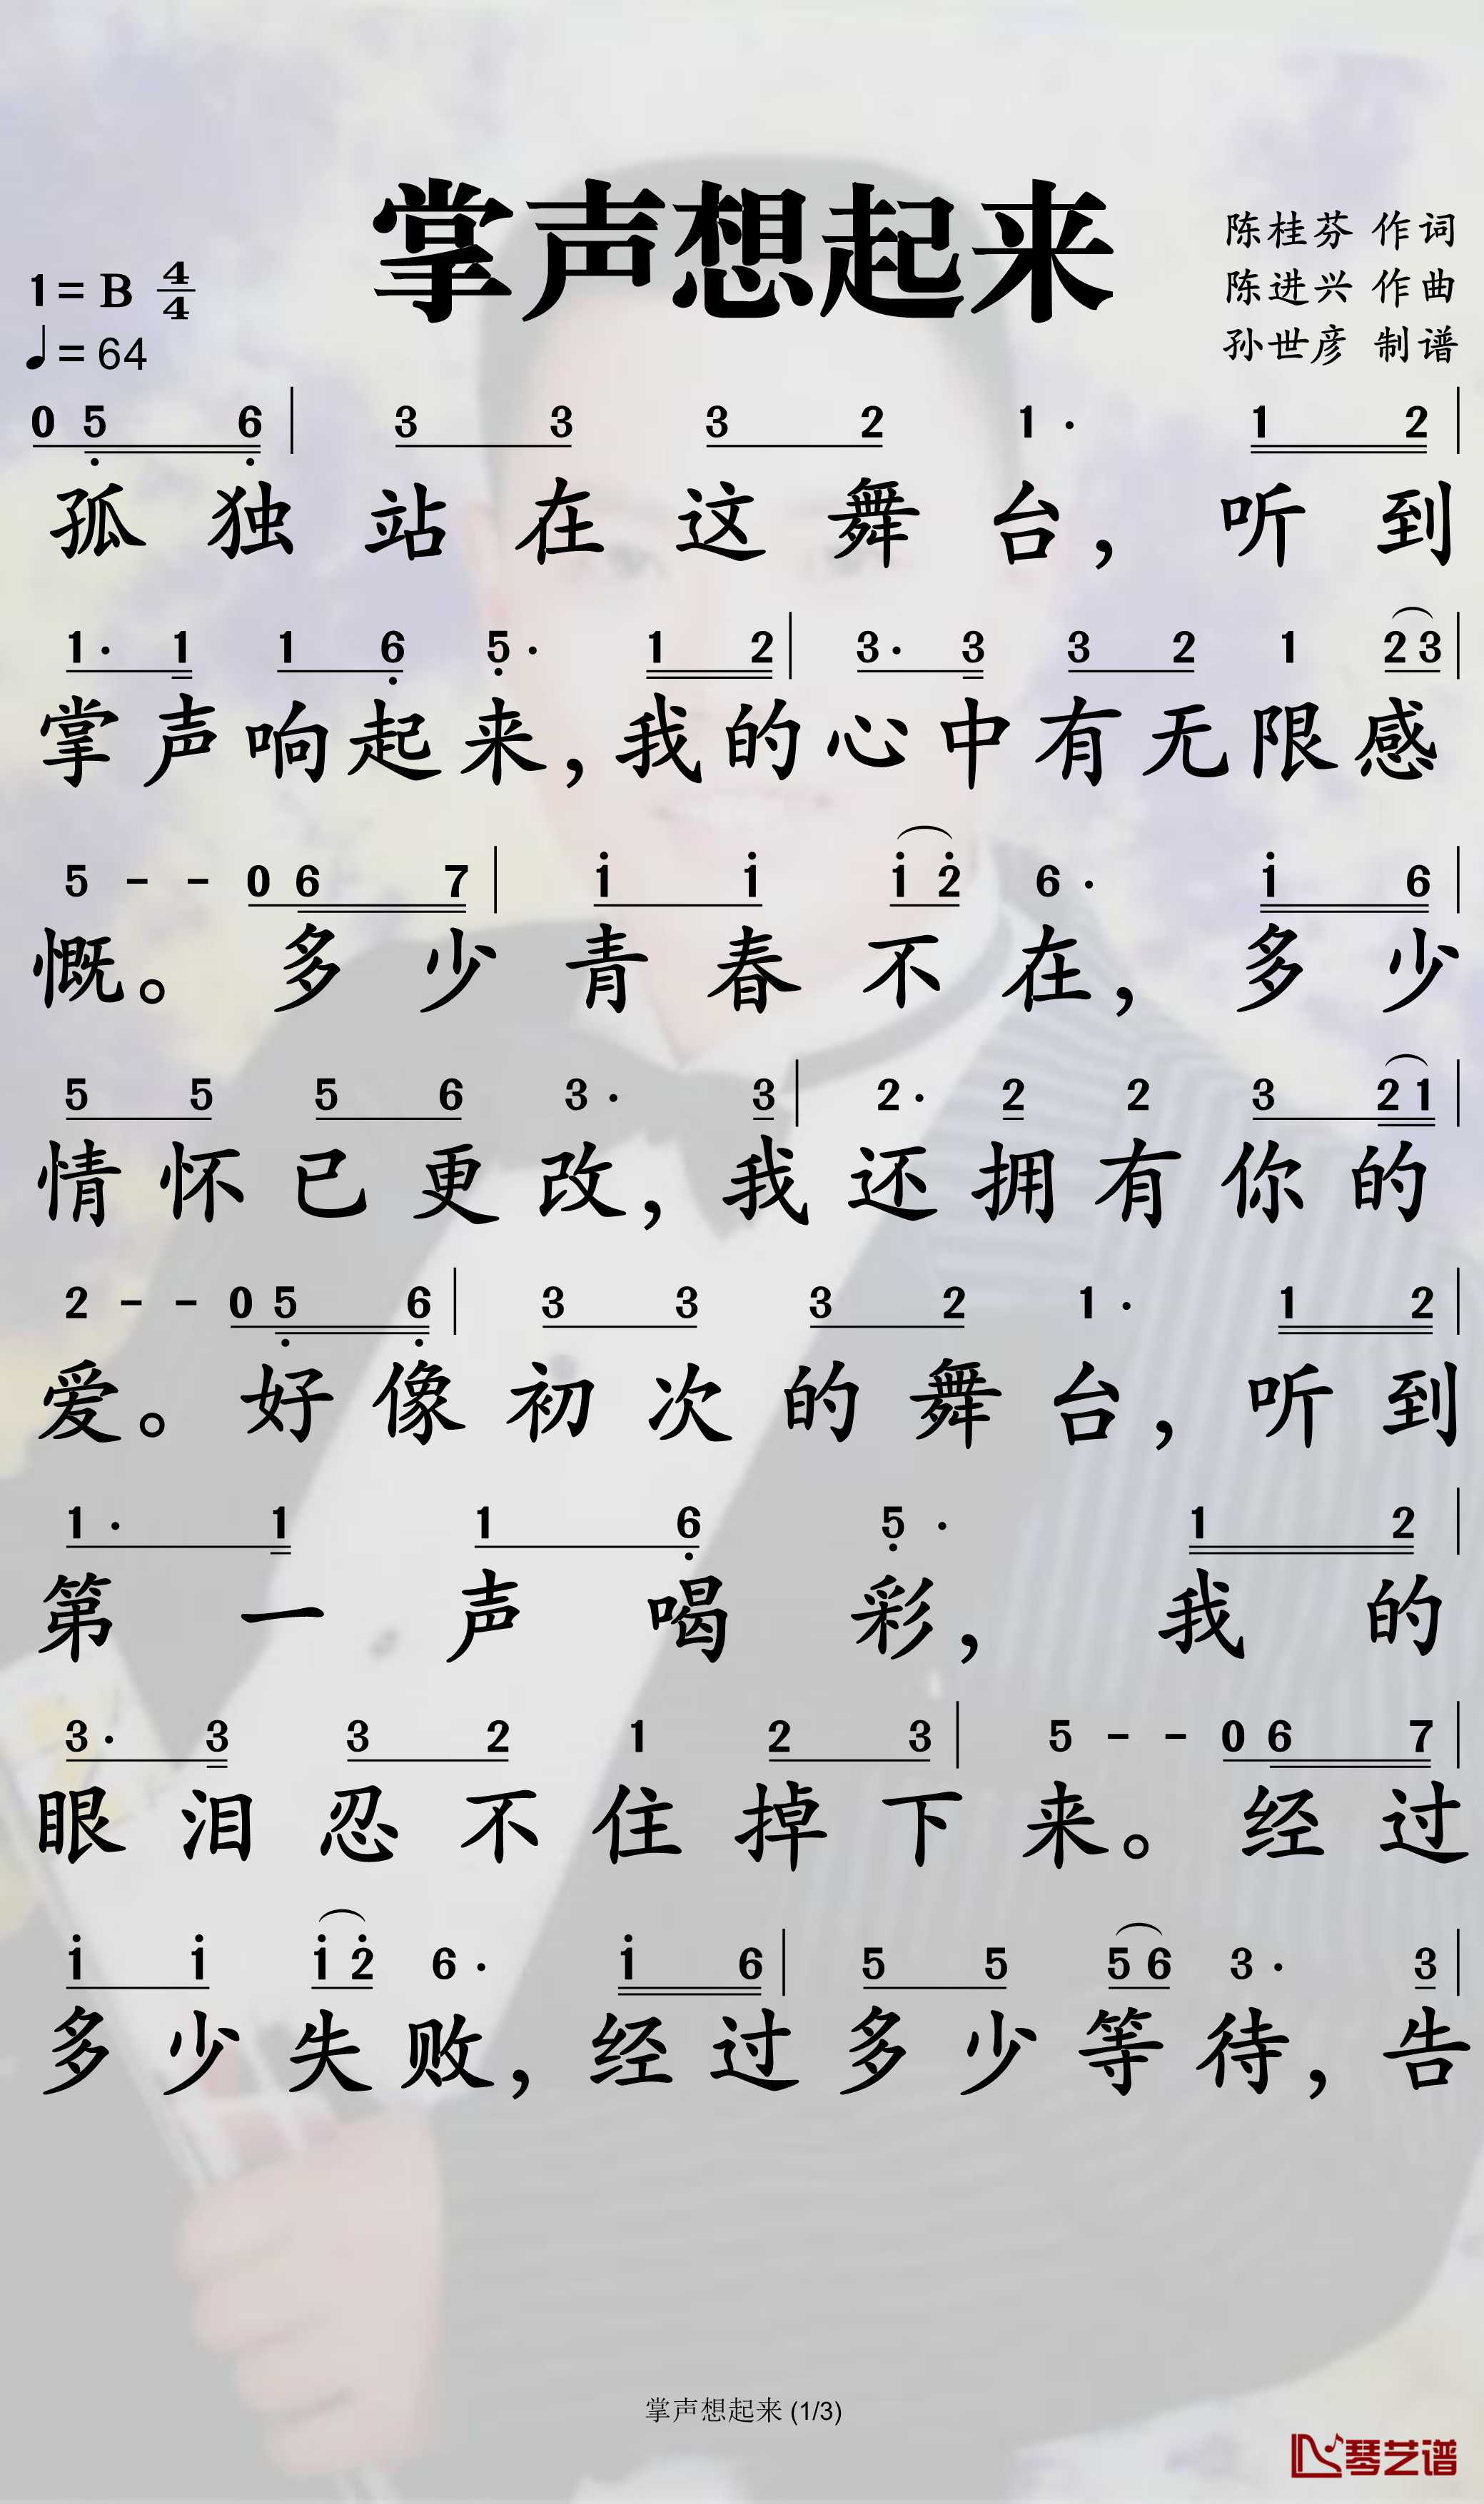 掌声想起来
陈桂芬 作词
陈进兴 作曲
孙世彦 制谱
1=B 4/4
♩=64
0 5 6 | 3 3 3 2 1· 1 2 |
孤独站在这舞台，听到
1· 1 1 6 5· 1 2 | 3· 3 3 2 1 2 3 |
掌声响起来，我的心中有无限感
5 - - 0 6 7 | 1 1 1 2 6· 1 6 |
慨。多少青春不在，多少
5 5 5 6 3· 3 | 2· 2 2 3 2 1 |
情怀已更改，我还拥有你的
2 - - 0 5 6 | 3 3 3 2 1· 1 2 |
爱。好像初次的舞台，听到
1· 1 1 6 5· 1 2 |
第一声喝彩，我的
3· 3 3 2 1 2 3 | 5 - - 0 6 7 |
眼泪忍不住掉下来。经过
1 1 1 2 6· 1 6 | 5 5 5 6 3· 3 |
多少失败，经过多少等待，告
掌声想起来 (1/3)
琴艺谱